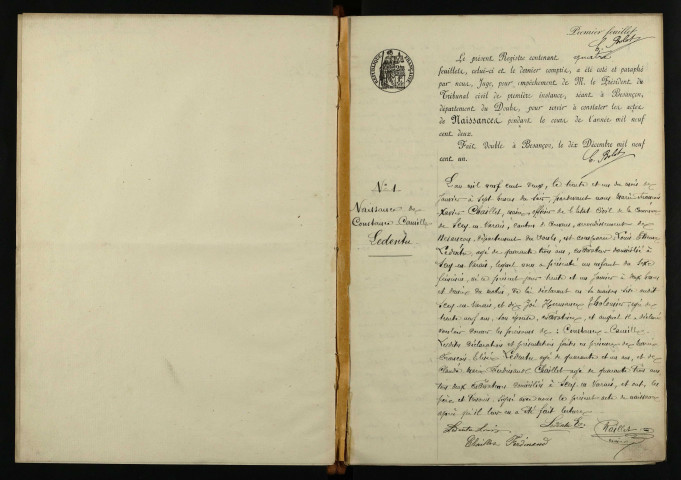 Premier feuillet
Le présent Registre contenant quatre
feuillets, celui-ci et le dernier compris, a été coté et paraphé
par nous, Juge, pour empêchement de M. le Président du
Tribunal civil de première instance, séant à Besançon,
département du Doubs, pour servir à constater les actes
de Naissances pendant le cours de l'année mil neuf
cent deux.
Fait double à Besançon, le dix Décembre mil neuf
cent un.
RÉPUBLIQUE FRANÇAISE
N° 1.
Naissance de
Constance Camille
Ledentu
L'an mil neuf cent deux, le trente et un du mois de
janvier à sept heures du soir, pardevant nous Marie François
Xavier Chaillet, maire, officier de l'état civil de la Commune
de Scey en Varais, canton d'Ornans, arrondissement de
Besançon, département du Doubs, est comparu Louis
Ledentu, âgé de quarante trois ans, cultivateur domicilié à
Scey en Varais, lequel nous a présenté un enfant du sexe
féminin, né le présent jour trente et un janvier à deux heures
et demie du matin, de lui déclarant en sa maison sise audit
Scey en Varais, et de Zoé Hermance âgée de
trente neuf ans, son épouse, cultivatrice, et auquel il a déclaré
vouloir donner les prénoms de : Constance Camille
Lesdites déclaration et présentation faites en présence de
François Ledentu âgé de quarante et un ans, et de
Claude Marie Ferdinand Chaillet âgé de quarante trois ans
tous deux cultivateurs domiciliés à Scey en Varais, et ont, les
père et témoins signé avec nous le présent acte de naissance
après qu'il leur en a été fait lecture.
Ledentu Louis Ledentu Chaillet
Chaillet Ferdinand maire